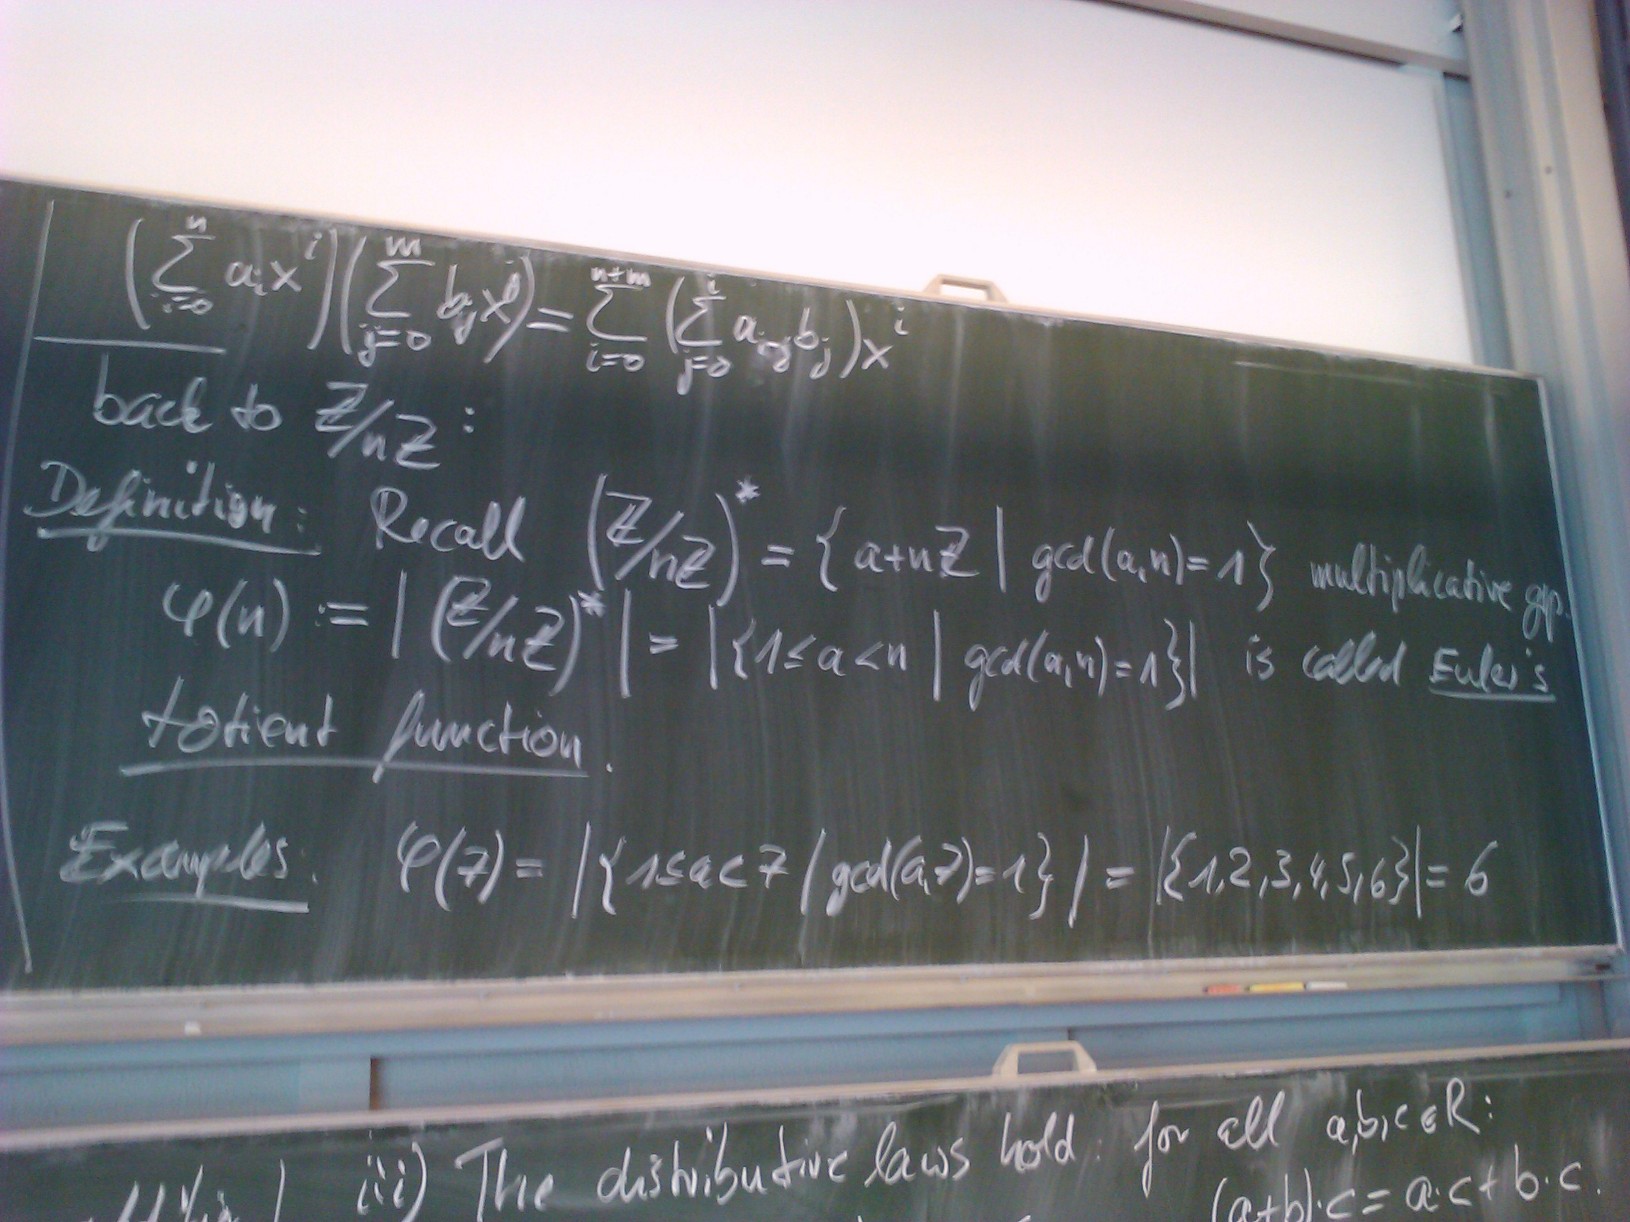 (∑_{i=0}^{n} a_i x^i)(∑_{j=0}^{m} b_j x^j) = ∑_{i=0}^{n+m} (∑_{j=0}^{i} a_{i-j} b_j) x^i
back to ℤ/nℤ :
Definition: Recall (ℤ/nℤ)* = { a+nℤ | gcd(a,n)=1 } multiplicative grp.
φ(n) := | (ℤ/nℤ)* | = |{1≤a<n | gcd(a,n)=1}| is called Euler's
totient function.
Examples: φ(7) = |{1≤a<7 | gcd(a,7)=1}| = |{1,2,3,4,5,6}| = 6
iii) The distributive laws hold: for all a,b,c∈R:
(a+b)·c = a·c + b·c.